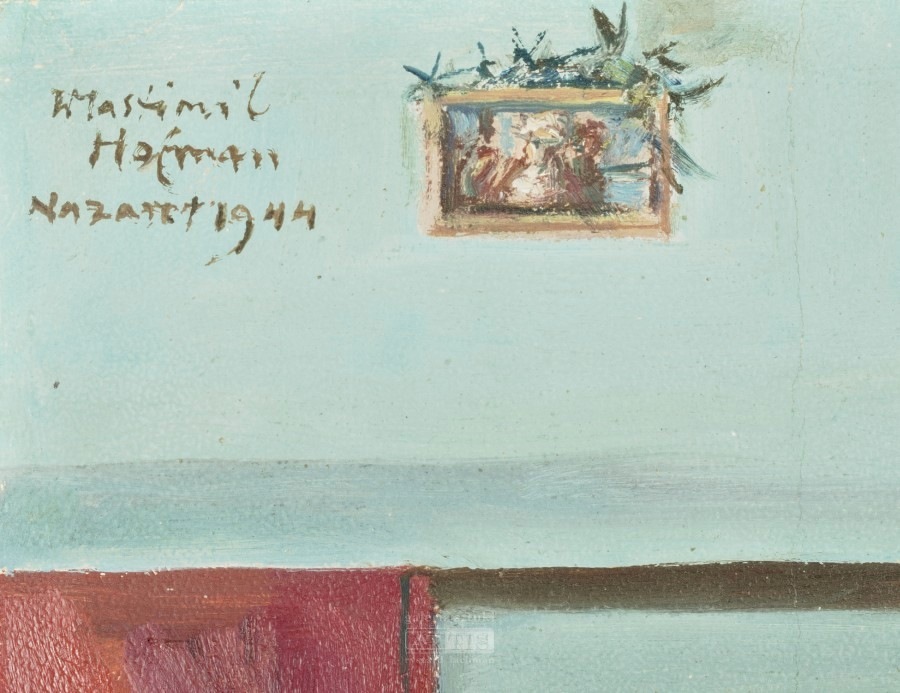 Wlastimil
Hofman
Nazaret 1944